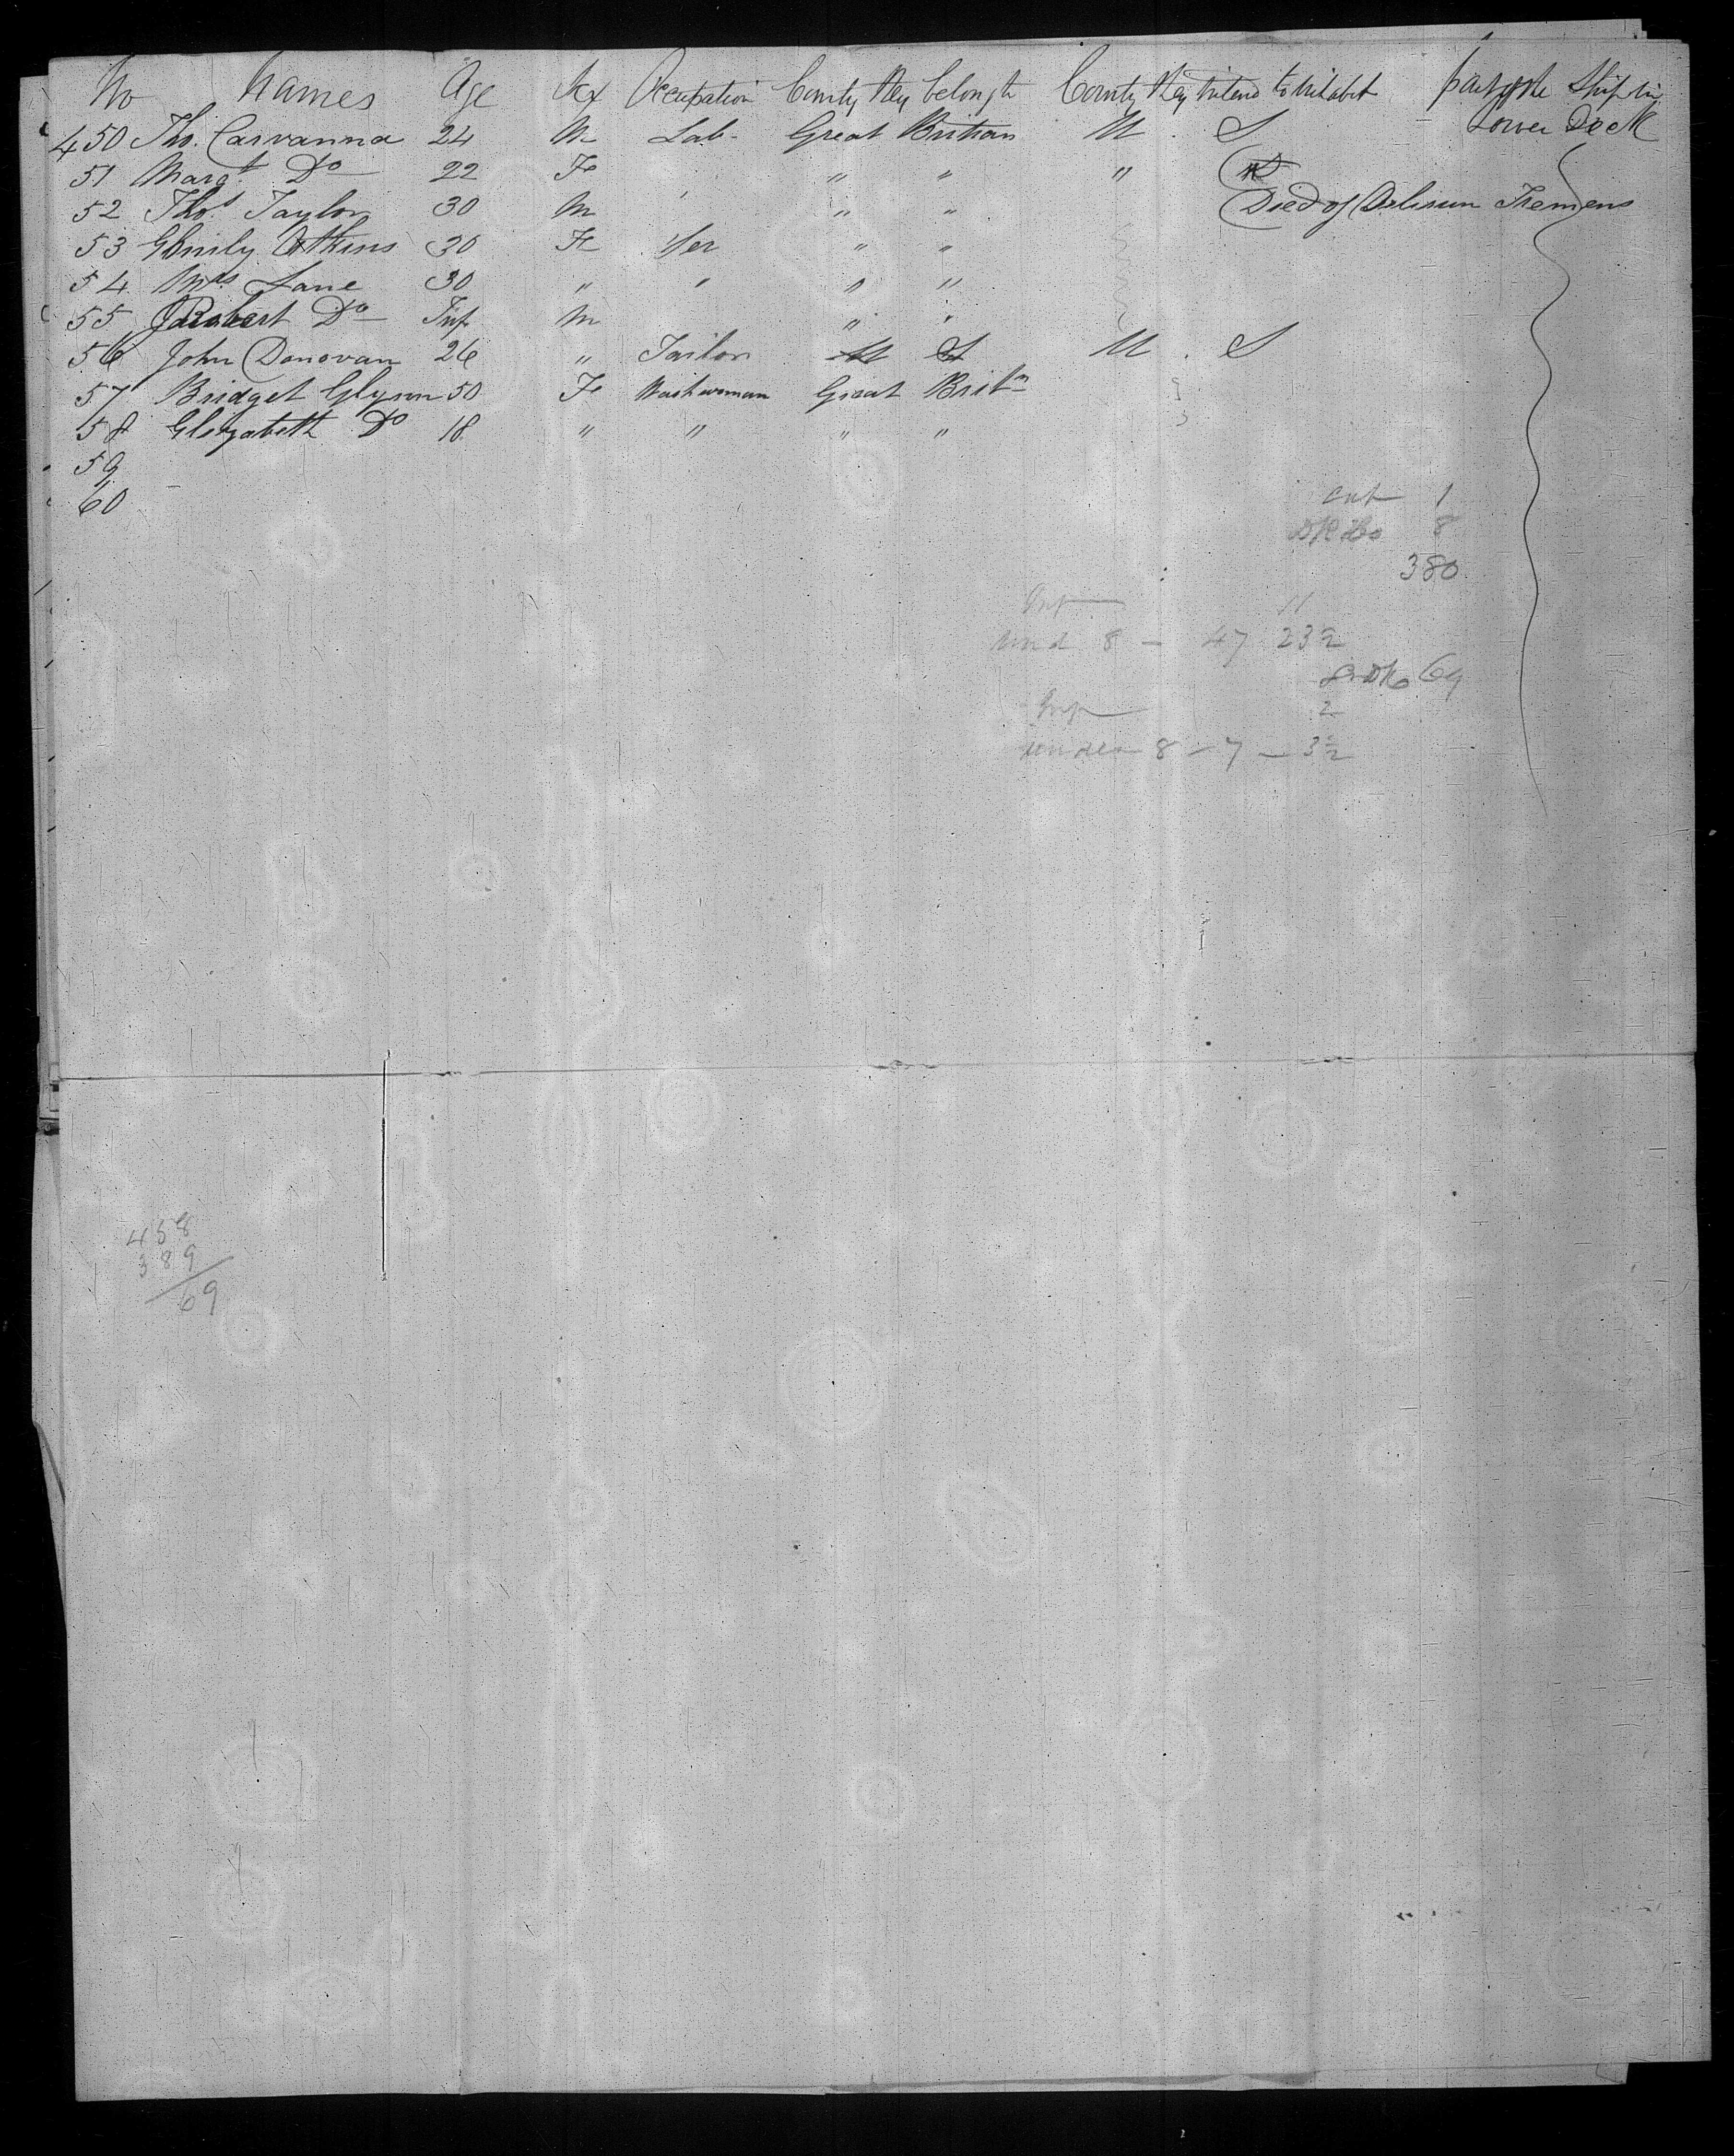 No Names Age Sex Occupation County they belong to County they intend to inhabit part of the Ship in
450 Tho. Carvanna 24 M Lab- Great Britian U. S Lower Deck
51 Margt Do 22 Fe " " "
52 Thos Taylor 30 M " " " Died of Delirium Tremens
53 Emily Atkins 30 Fe Ser " "
54 Mrs Lane 30 " " " "
55 Robert Do Inf M " "
56 John Donovan 26 " Tailor U S U. S
57 Bridget Glynn 50 Fe Washwoman Great Britn
58 Elizabeth Do 18 " " " "
59
60
Cab 1
DK Ho 8
380
Inf 11
und 8 - 47 23½
L DK 69
Inf 2
under 8 - 7 - 3½
458
389
69